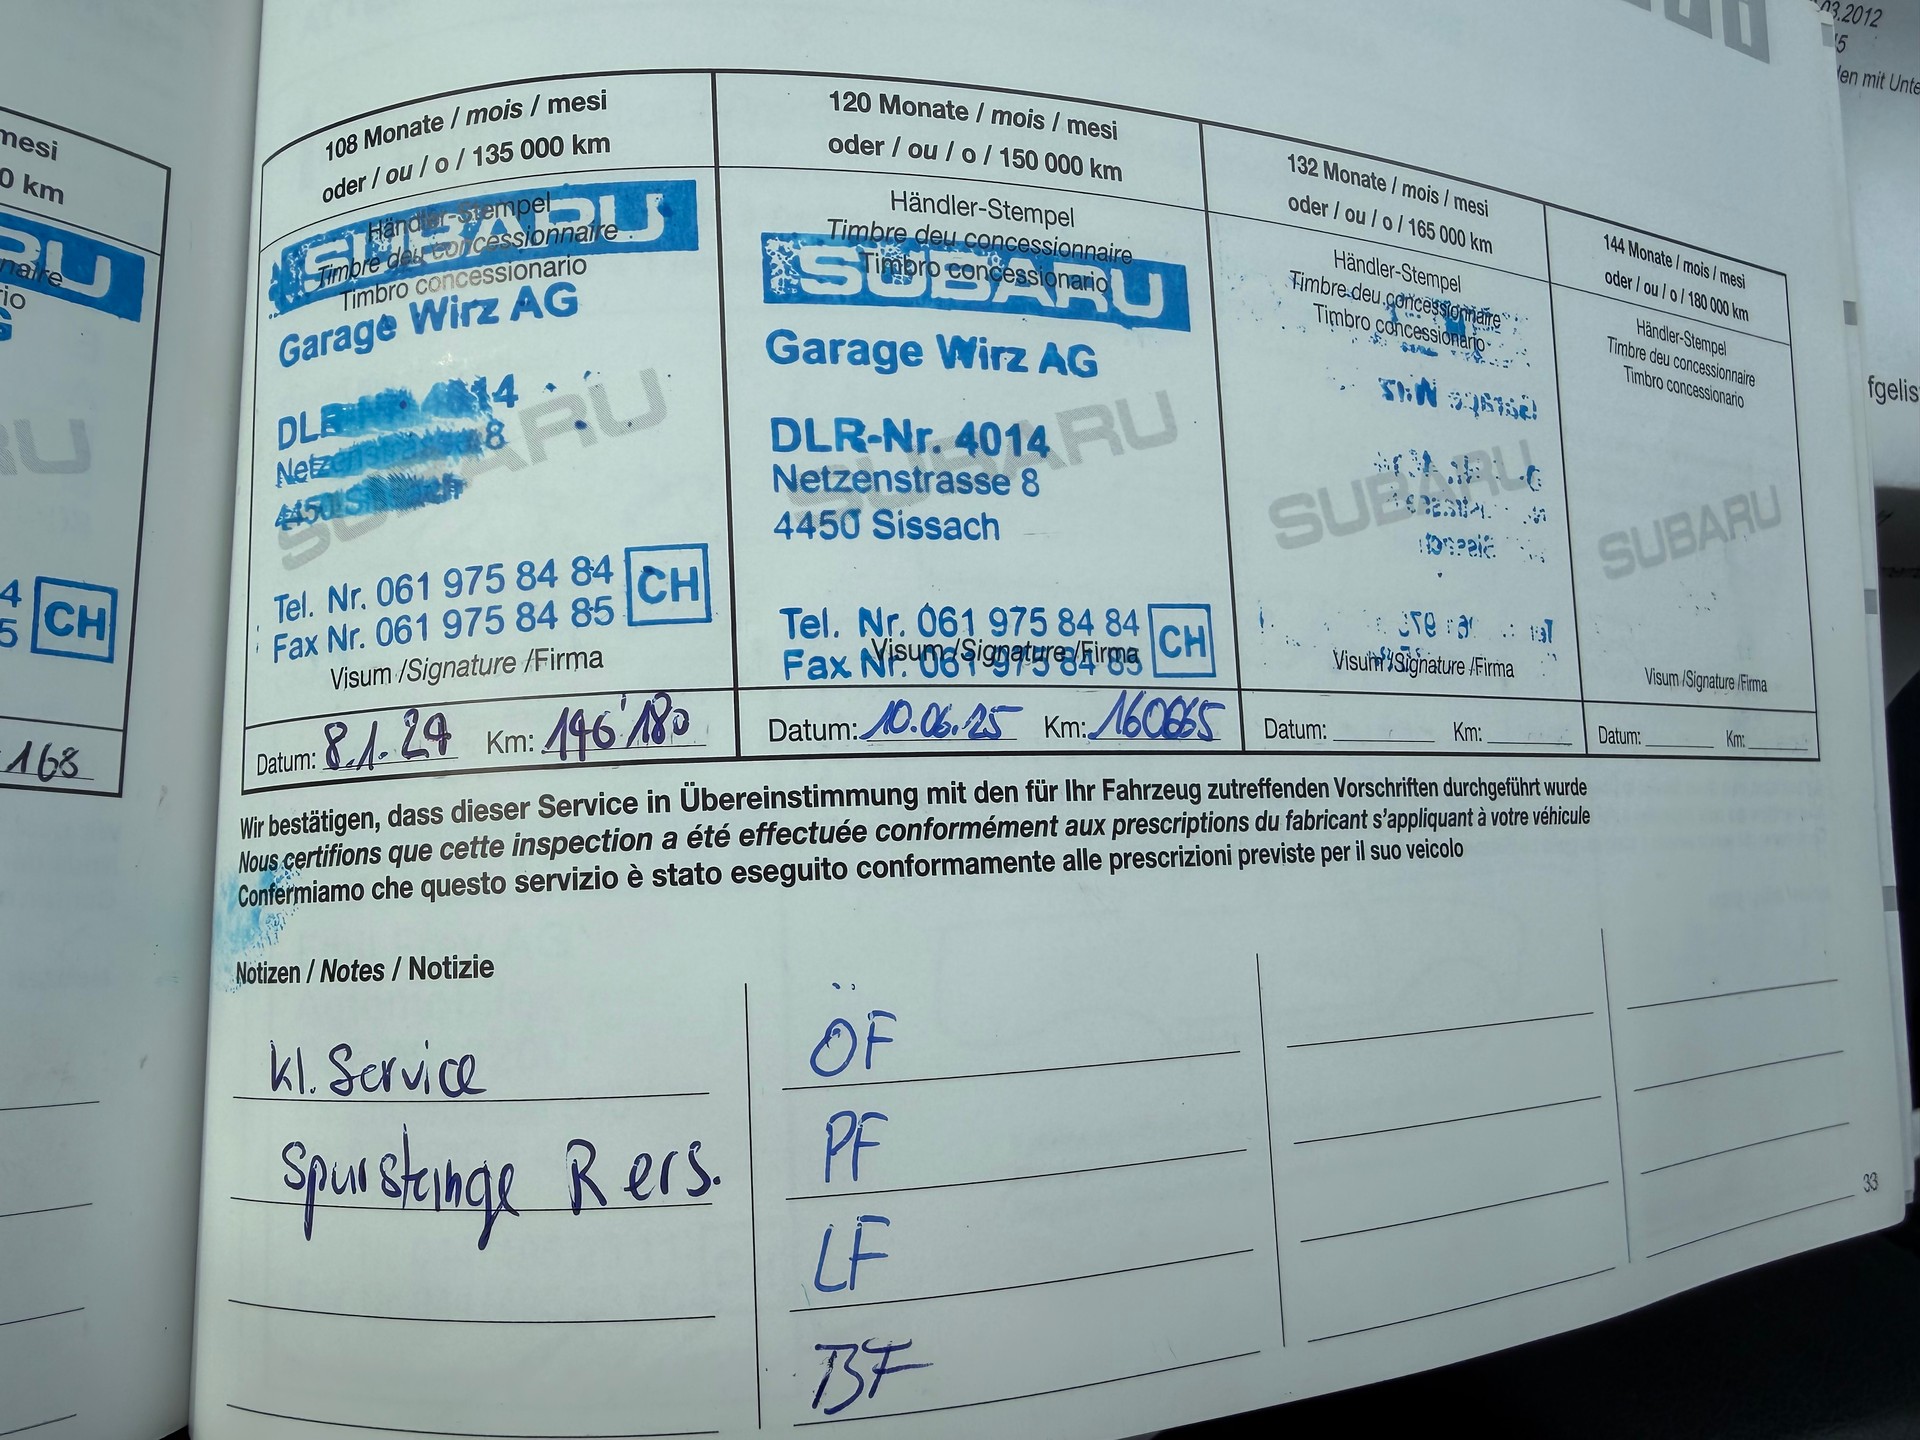 mesi
0 km
168
108 Monate / mois / mesi
oder / ou / o / 135 000 km
Händler-Stempel
Timbre deu concessionnaire
Timbro concessionario
SUBARU
Garage Wirz AG
4014
Netzenstrasse 8
4450 Sissach
SUBARU
Tel. Nr. 061 975 84 84
Fax Nr. 061 975 84 85
CH
Visum /Signature /Firma
Datum: 8.1.24 Km: 146'180
120 Monate / mois / mesi
oder / ou / o / 150 000 km
Händler-Stempel
Timbre deu concessionnaire
Timbro concessionario
SUBARU
Garage Wirz AG
DLR-Nr. 4014
Netzenstrasse 8
4450 Sissach
SUBARU
Tel. Nr. 061 975 84 84
Fax Nr. 061 975 84 85
CH
Visum /Signature /Firma
Datum: 10.06.25 Km: 160665
132 Monate / mois / mesi
oder / ou / o / 165 000 km
Händler-Stempel
Timbre deu concessionnaire
Timbro concessionario
SUBARU
Visum /Signature /Firma
Datum: Km:
144 Monate / mois / mesi
oder / ou / o / 180 000 km
Händler-Stempel
Timbre deu concessionnaire
Timbro concessionario
SUBARU
Visum /Signature /Firma
Datum: Km:
Wir bestätigen, dass dieser Service in Übereinstimmung mit den für Ihr Fahrzeug zutreffenden Vorschriften durchgeführt wurde
Nous certifions que cette inspection a été effectuée conformément aux prescriptions du fabricant s'appliquant à votre véhicule
Confermiamo che questo servizio è stato eseguito conformamente alle prescrizioni previste per il suo veicolo
Notizen / Notes / Notizie
kl. Service
Spurstange R ers.
ÖF
PF
LF
BF
33
03.2012
mit Unte